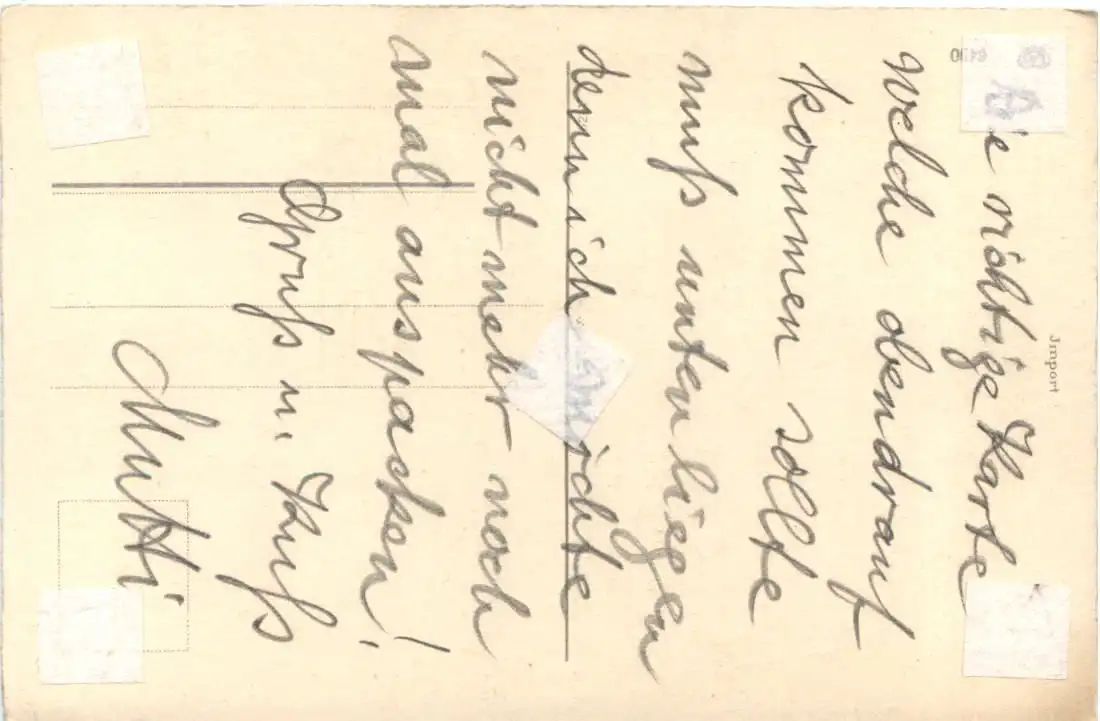 Import
Die richtige Karte
welche obendrauf
kommen sollte
muß unten liegen
denn ich möchte
nicht mehr noch
mal auspacken!
Gruß u. Kuß
Mutti